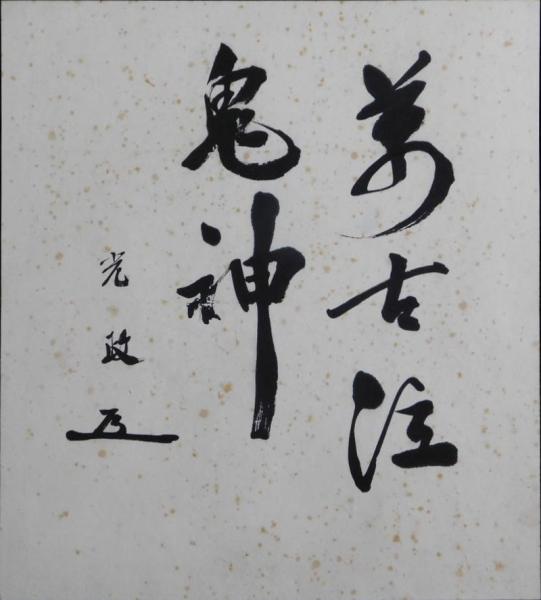 萬古泣
鬼神
光政